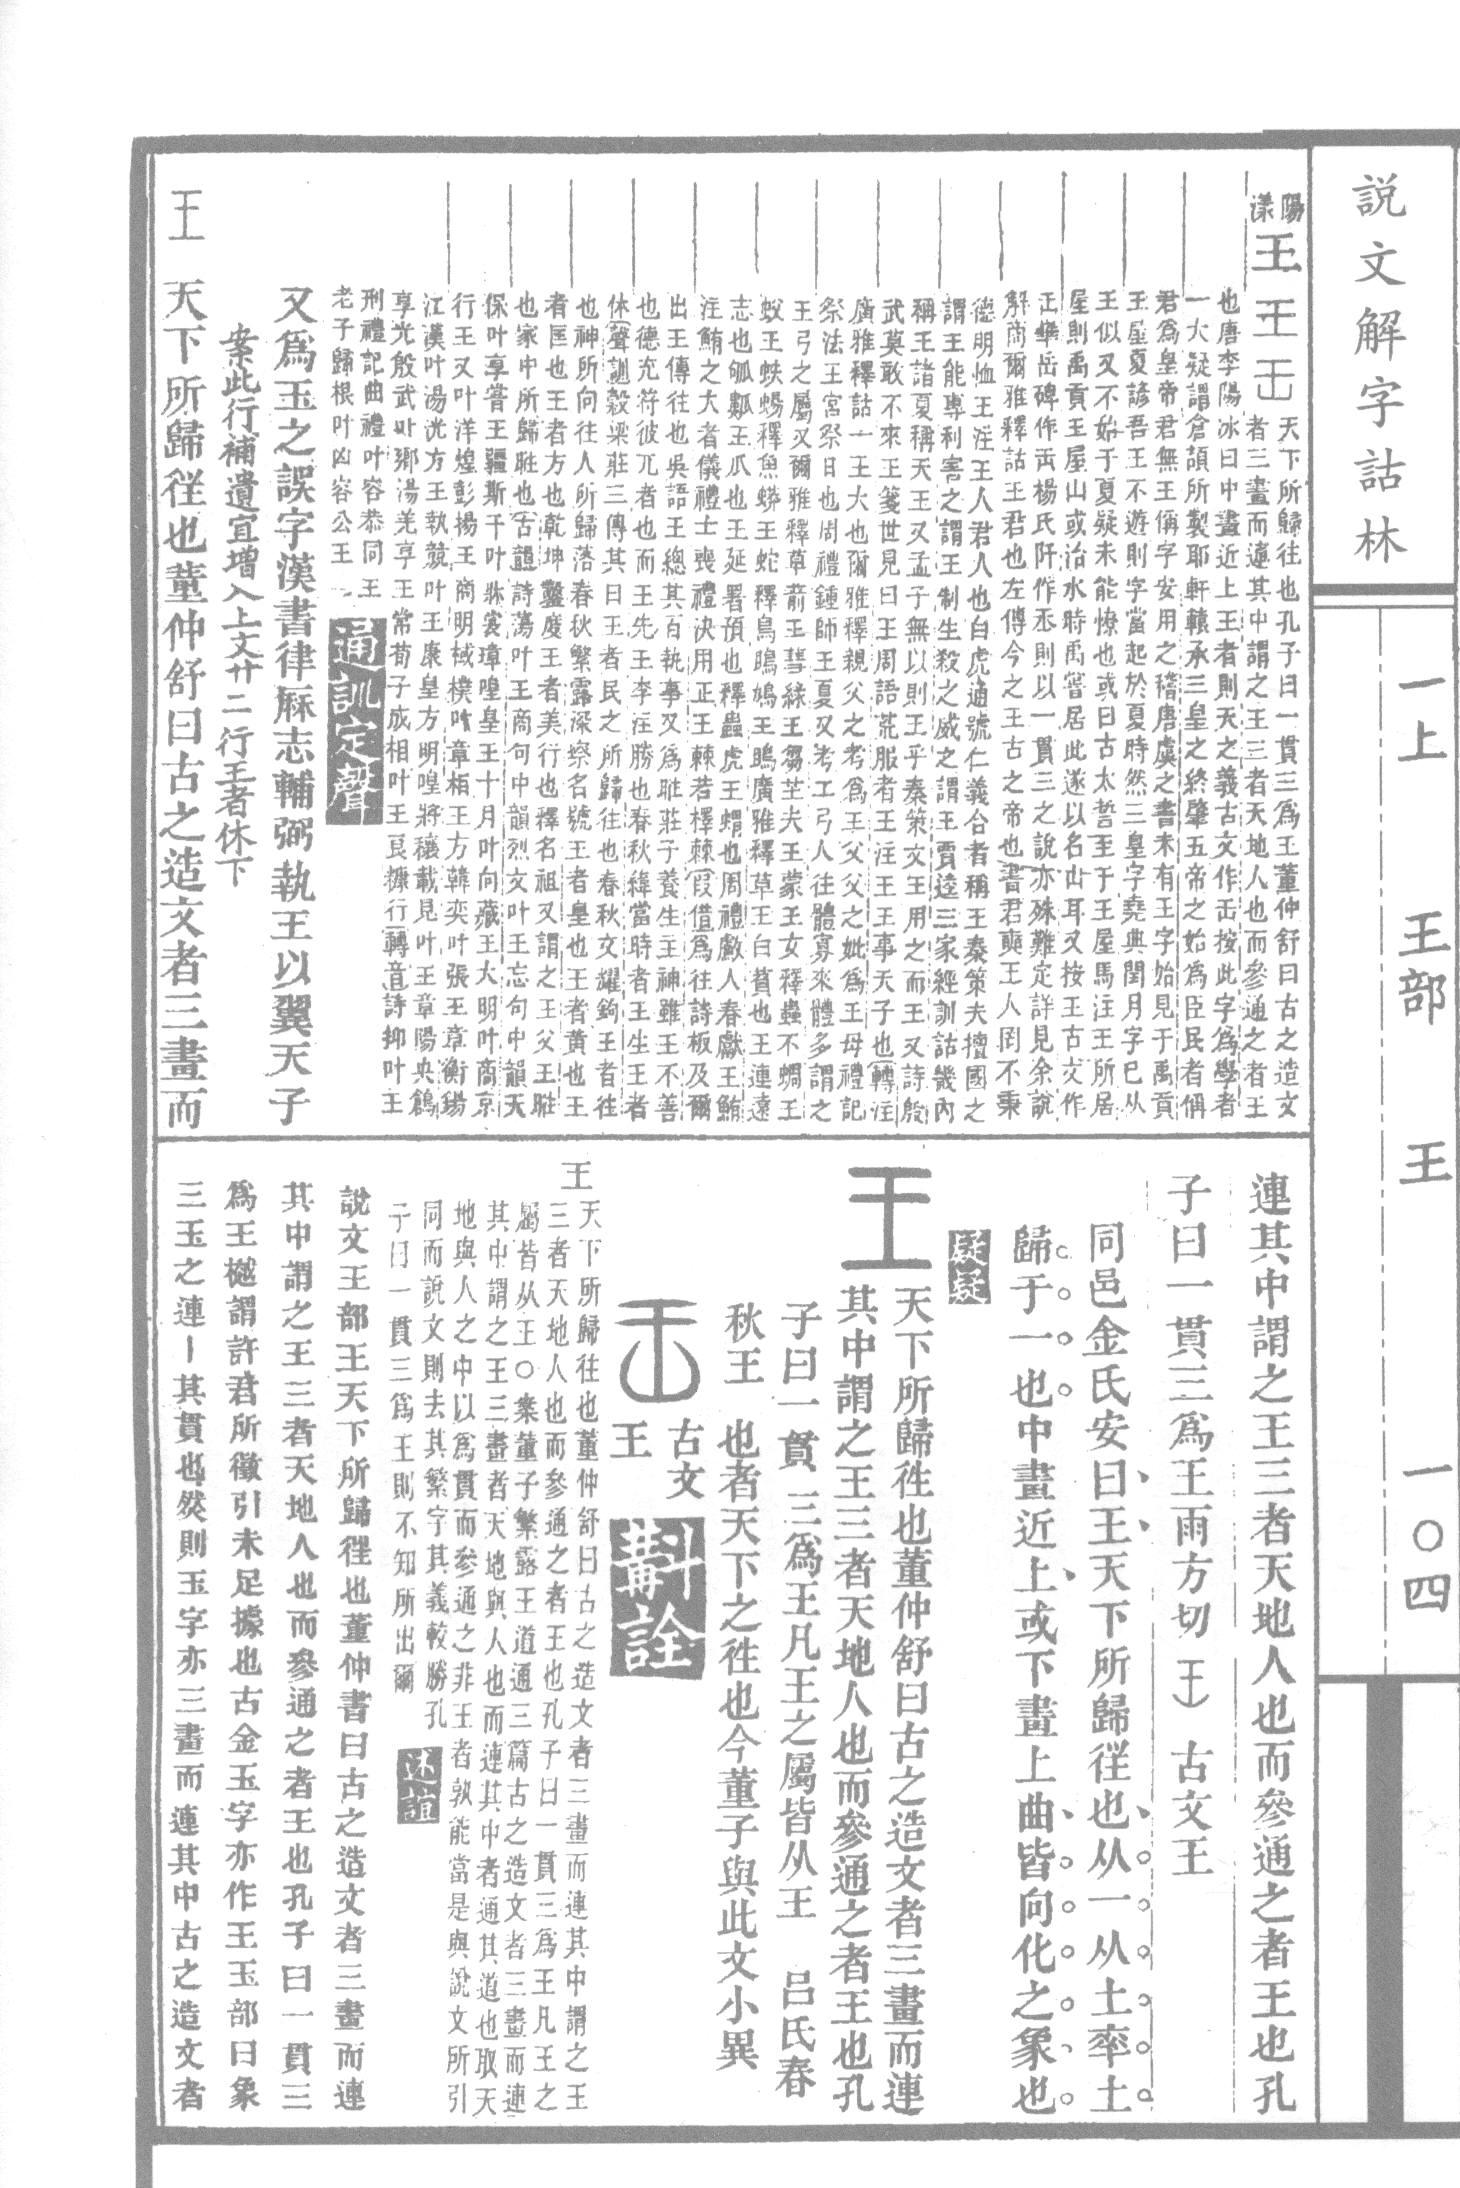 說文解字詁林
一上　王部　王　一〇四
陽漾
王
天下所歸往也孔子曰一貫三爲王董仲舒曰古之造文
者三畫而連其中謂之王三者天地人也而參通之者王
也唐李陽冰曰中畫近上王者則天之義古文作𠙻按此字爲學者
一大疑謂倉頡所製耶軒轅承三皇之終肇五帝之始爲臣民者偁
君爲皇帝君無王偁字安用之稽唐虞之書未有王字始見于禹貢
王屋夏諺吾王不遊則字當起於夏時然三皇字堯典閏月字已从
王似又不始于夏疑未能憭也或曰古太誓至于王屋馬注王所居
屋則禹貢王屋山或治水時禹嘗居此遂以名山耳又按王古文作
楊氏阡作丕則以一貫三之說亦殊難定詳見余說
解商爾雅釋詁王君也左傳今之王古之帝也書君奭王人罔不秉
德明恤王注王人君人也白虎通號仁義合者稱王秦策夫擅國之
謂王能專利害之謂王制生殺之威之謂王賈逵三家經訓詁畿內
稱王諸夏稱天王又孟子無以則王乎秦策文王用之而王又詩殷
武莫敢不來王箋世見曰王周語荒服者王注王王事天子也轉注
廣雅釋詁一王大也爾雅釋親父之考爲王父父之妣爲王母禮記
祭法王宮祭日也周禮鍾師王夏又考工弓人往體寡來體多謂之
王弓之屬又爾雅釋草葥王蔧綠王芻芏夫王蒙王女釋蟲不蜩王
蚁王蛈蝪釋魚蟒王蛇釋鳥鴡鳩王鴡廣雅釋草王白蕡也王連遠
志也瓠瓢王瓜也王延署預也釋蟲虎王蝟也周禮獻人春獻王鮪
注鮪之大者儀禮士喪禮決用正王棘若檡棘假借爲往詩板及爾
出王傳往也吳語王總其百執事又爲暀莊子養生主神雖王不善
也德充符彼兀者也而王先王李注勝也春秋緯當時者王生王者
休聲訓穀梁莊三傳其曰王者民之所歸往也春秋文耀鉤王者往
也神所向往人所歸落春秋繁露深察名號王者皇也王者黃也王
者匡也王者方也乾坤鑿度王者美行也釋名祖又謂之王父王暀
也家中所歸暀也古韻詩蕩叶王商句中韻烈文叶王忘句中韻天
保叶享嘗王疆斯干叶牀裳璋喤皇王十月叶向藏王大明叶商京
行王又叶洋煌彭揚王商明棫樸叶章相王方韓奕叶張王章衡錫
江漢叶湯洸方王執競叶王康皇方明喤將穰載見叶王章陽央鶬
享光殷武叶鄉湯羌享王常荀子成相叶王良糠行轉音詩抑叶王
刑禮記曲禮叶容恭同王
老子歸根叶凶容公王
通訓定聲
又爲玉之誤字漢書律厤志輔弼執王以翼天子
案此行補遺宜增入上文廿二行王者休下
王　天下所歸徃也董仲舒曰古之造文者三畫而
連其中謂之王三者天地人也而參通之者王也孔
子曰一貫三爲王雨方切　古文王
同邑金氏安曰王天下所歸徃也从一从土率土
歸于一也中畫近上或下畫上曲皆向化之象也
疑疑
王　天下所歸徃也董仲舒曰古之造文者三畫而連
其中謂之王三者天地人也而參通之者王也孔
子曰一貫三爲王凡王之屬皆从王　呂氏春
秋王　也者天下之徃也今董子與此文小異
古文王
斠詮
王　天下所歸往也董仲舒曰古之造文者三畫而連其中謂之王
三者天地人也而參通之者王也孔子曰一貫三爲王凡王之
屬皆从王〇案董子繁露王道通三篇古之造文者三畫而連
其中謂之王三畫者天地與人也而連其中者通其道也取天
地與人之中以爲貫而參通之非王者孰能當是與說文所引
同而說文則去其繁字其義較勝孔
子曰一貫三爲王則不知所出爾
述誼
說文王部王天下所歸徃也董仲書曰古之造文者三畫而連
其中謂之王三者天地人也而參通之者王也孔子曰一貫三
爲王樾謂許君所徵引未足據也古金玉字亦作王玉部曰象
三玉之連丨其貫也然則玉字亦三畫而連其中古之造文者